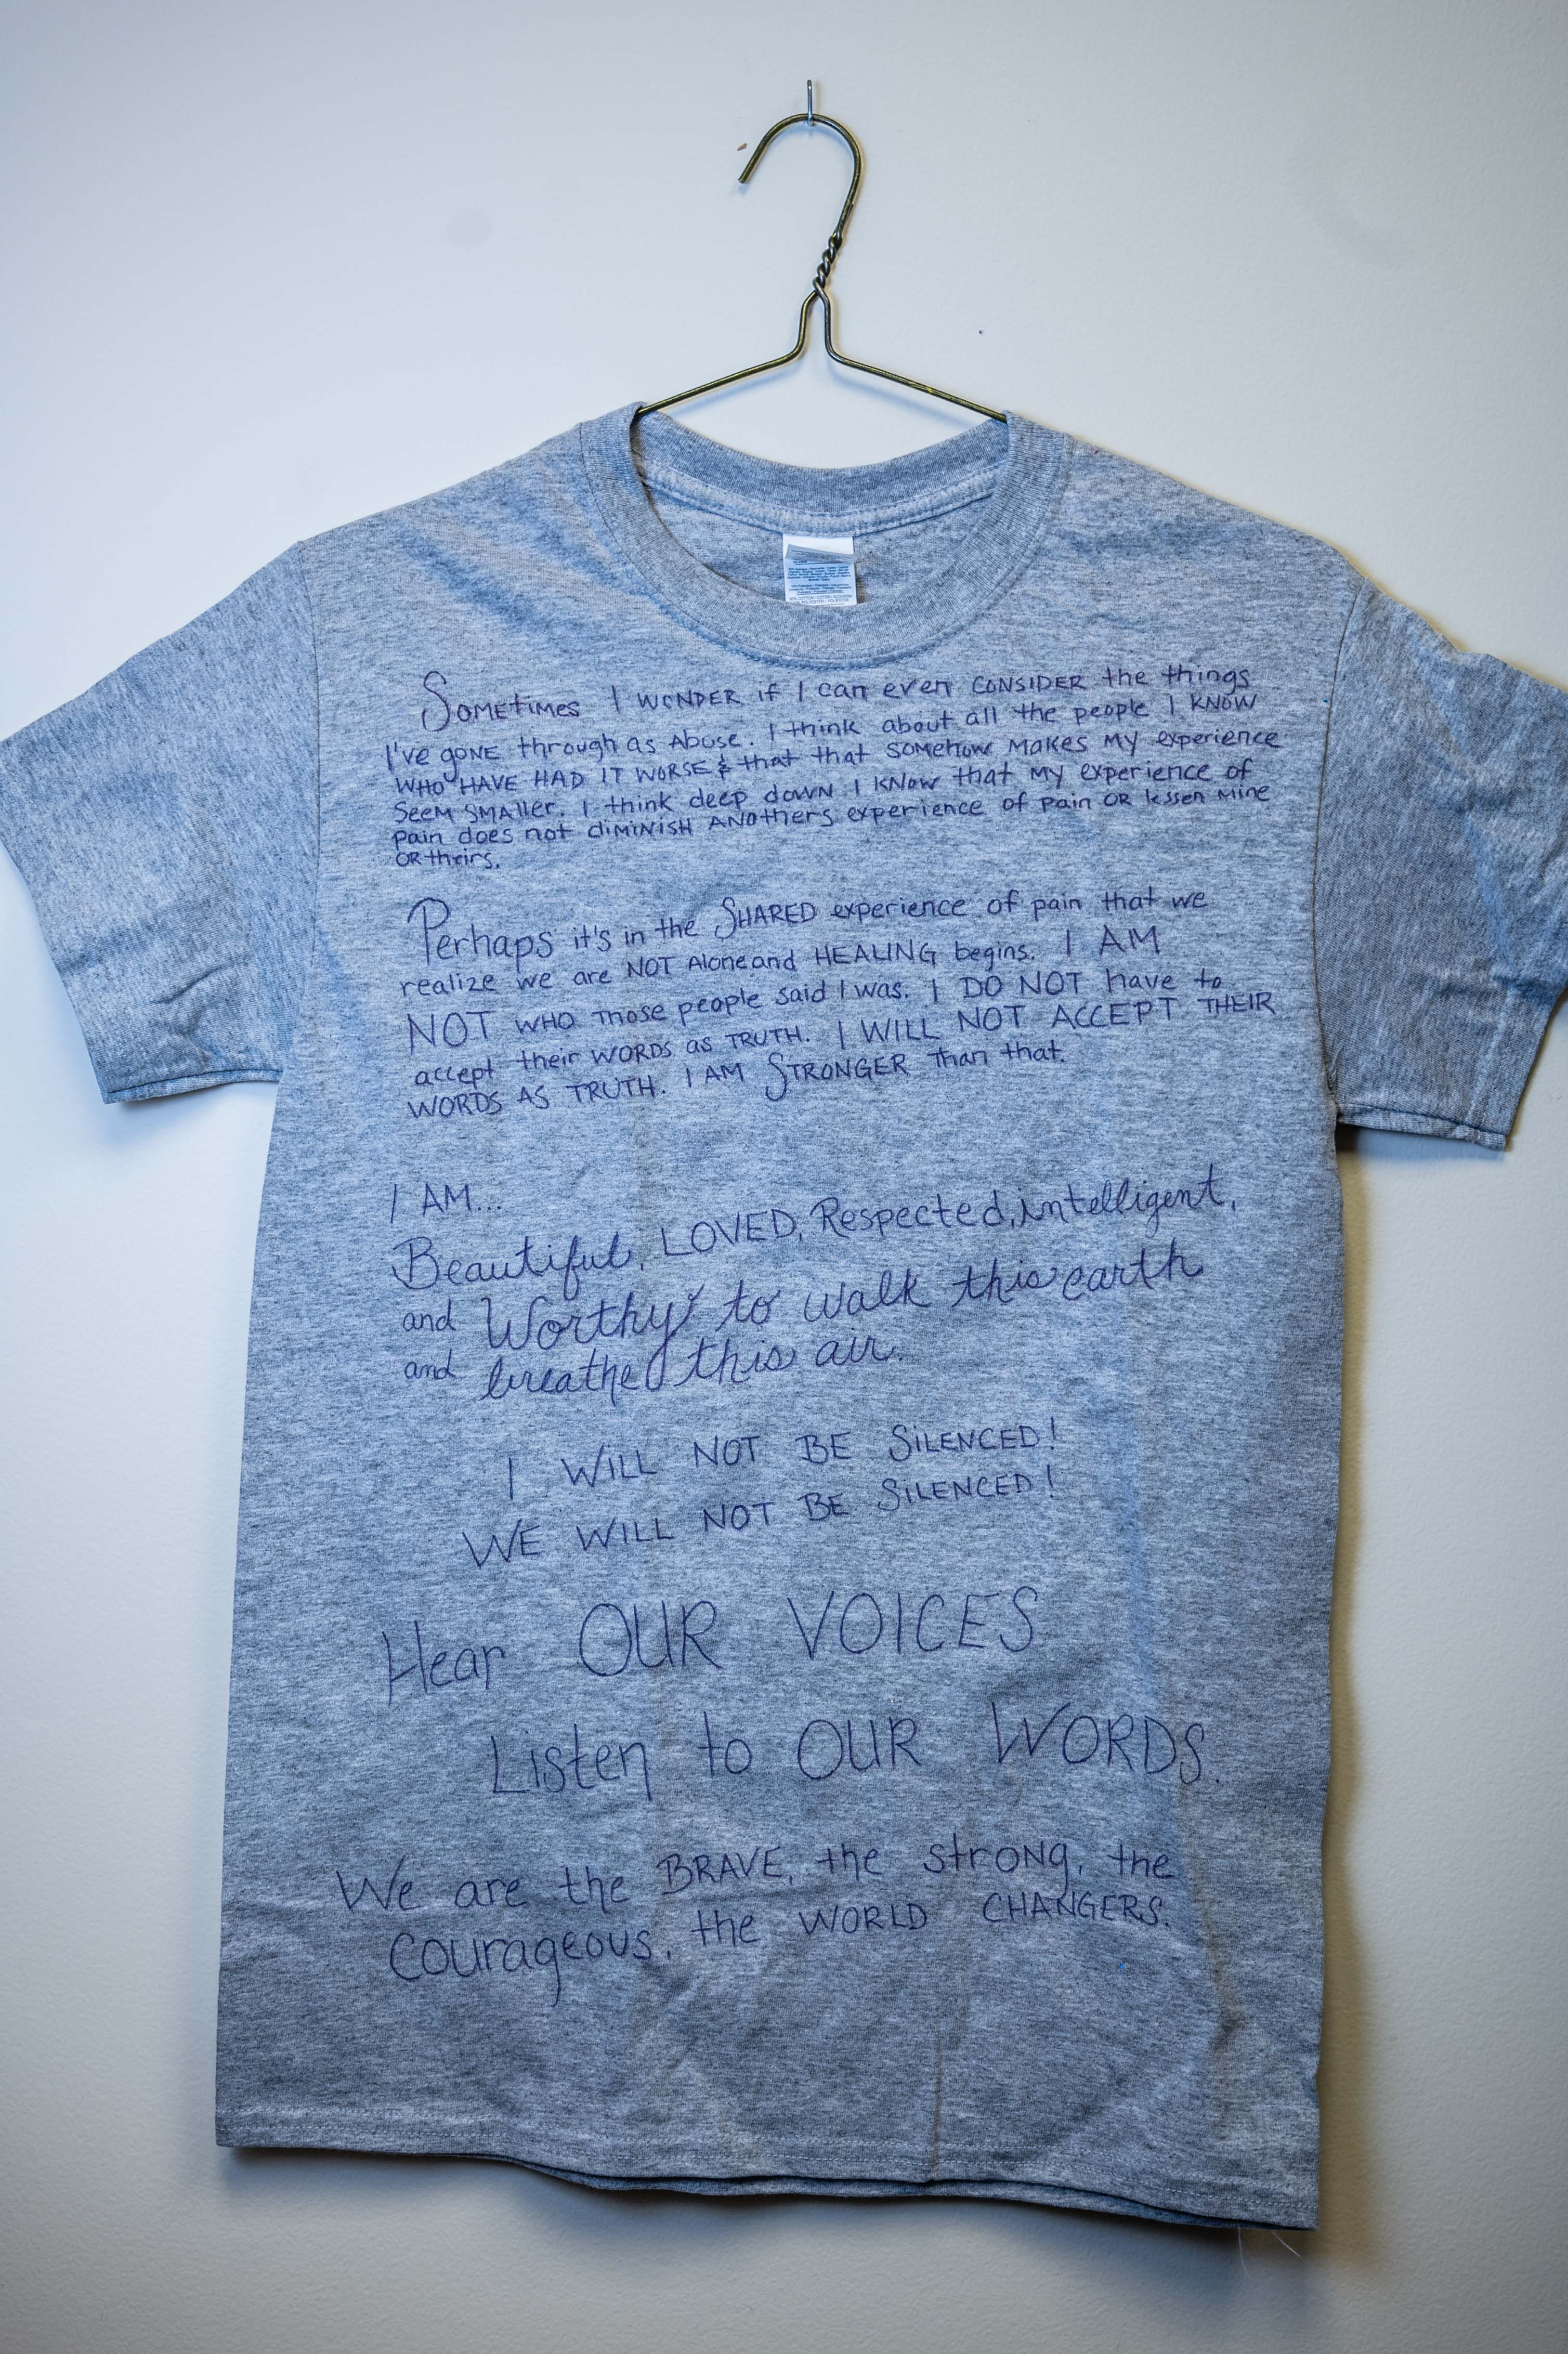 Sometimes I WONDER if I can even CONSIDER the things
I've gone through as Abuse. I think about all the people I KNOW
WHO HAVE HAD IT WORSE & that that somehow makes my experience
seem smaller. I think deep down I know that my experience of
pain does not diminish anothers experience of pain or lessen mine
or theirs.
Perhaps it's in the SHARED experience of pain that we
realize we are NOT Alone and HEALING begins. I AM
NOT WHO those people said I was. I DO NOT have to
accept their words as TRUTH. I WILL NOT ACCEPT THEIR
WORDS AS TRUTH. I AM STRONGER than that.
I AM...
Beautiful, LOVED, Respected, intelligent,
and Worthy to walk this earth
and breathe this air.
I WILL NOT BE SILENCED!
WE WILL NOT BE SILENCED!
Hear OUR VOICES
Listen to OUR WORDS.
We are the BRAVE, the strong, the
courageous, the WORLD CHANGERS.